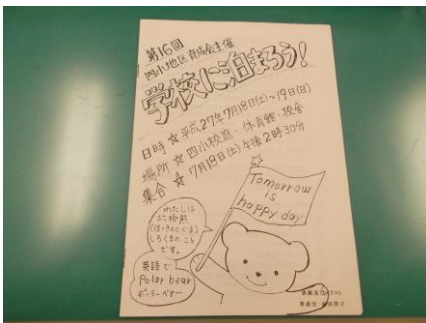 第16回
四小地区育成会主催
学校に泊まろう!
日時☆平成27年7月18日(土)~19日(日)
場所☆四小校庭・体育館・校舎
集合☆7月18日(土)午後2時30分
Tomorrow
is
happy day
わたしは
北極熊
(ほっきょくぐま)
しろくまのこと
です。
英語で
Polar bear
ポーラーベアー
表紙及イラスト
育成会